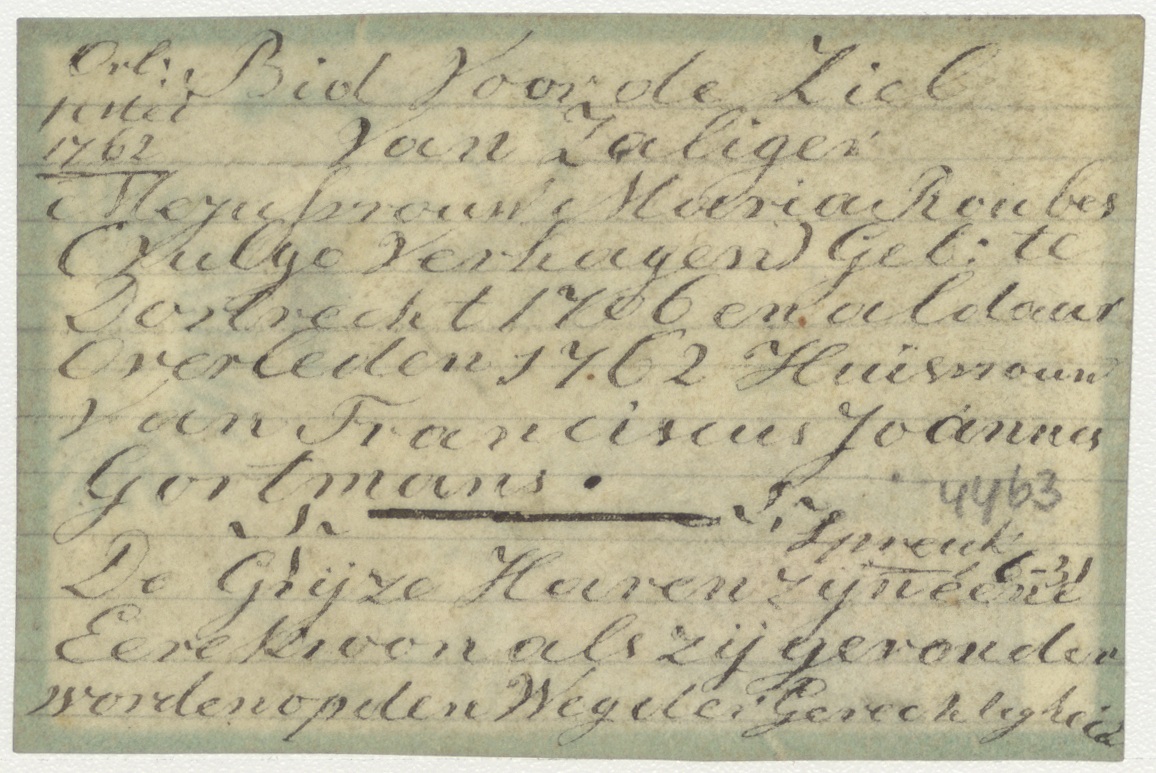 Orl:
1762
Bid Voor de Ziel
Van Zaliger
Mejufrouw Maria Roubos
(Vulgo Verhagen) Geb: te
Dortrecht 1706 en aldaar
Overleden 1762 Huisvrouw
Van Franciscus Joannes
Gortmans.
4463
Spreuk
De Grijze Haren zijn eene
Eerekroon als zij gevonden
worden op den Weg der Gerechtigheid